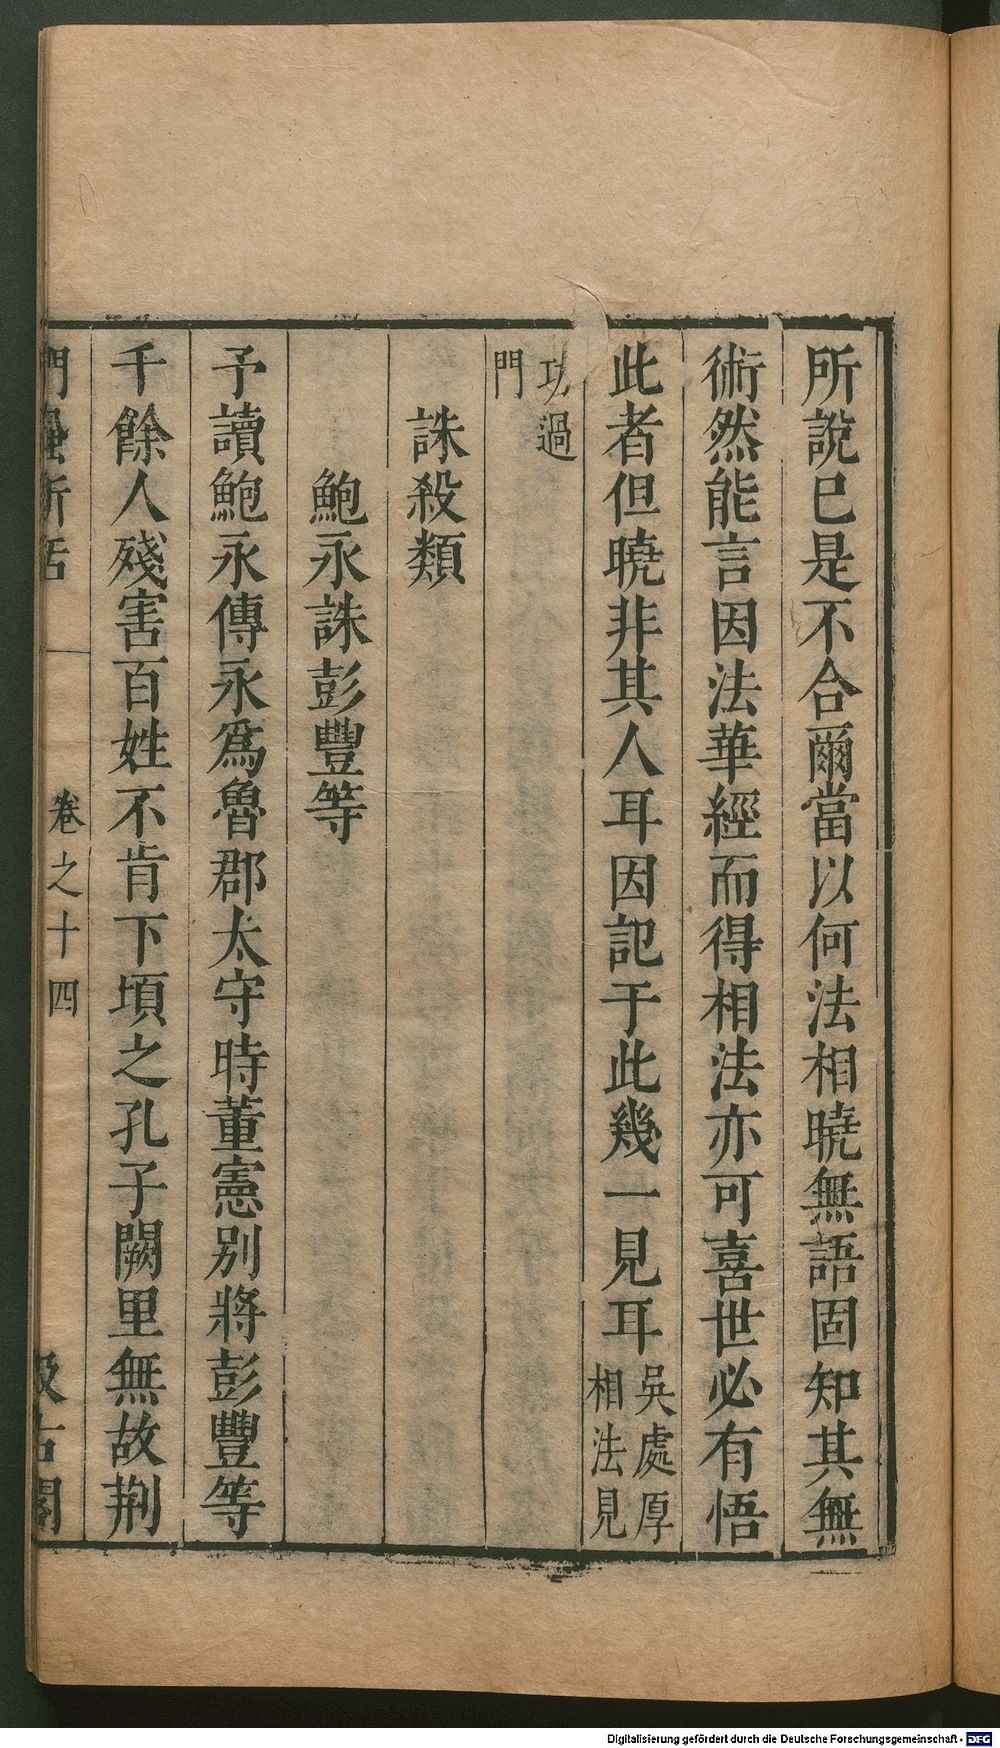 所說已是不合爾當以何法相曉無語固知其無
術然能言因法華經而得相法亦可喜世必有悟
此者但曉非其人耳因記于此幾一見耳吳處厚相法見
功過門
誅殺類
鮑永誅彭豐等
予讀鮑永傳永爲魯郡太守時董憲別將彭豐等
千餘人殘害百姓不肯下頃之孔子闕里無故荆
門蝨新話 卷之十四 汲古閣
Digitalisierung gefördert durch die Deutsche Forschungsgemeinschaft - DFG